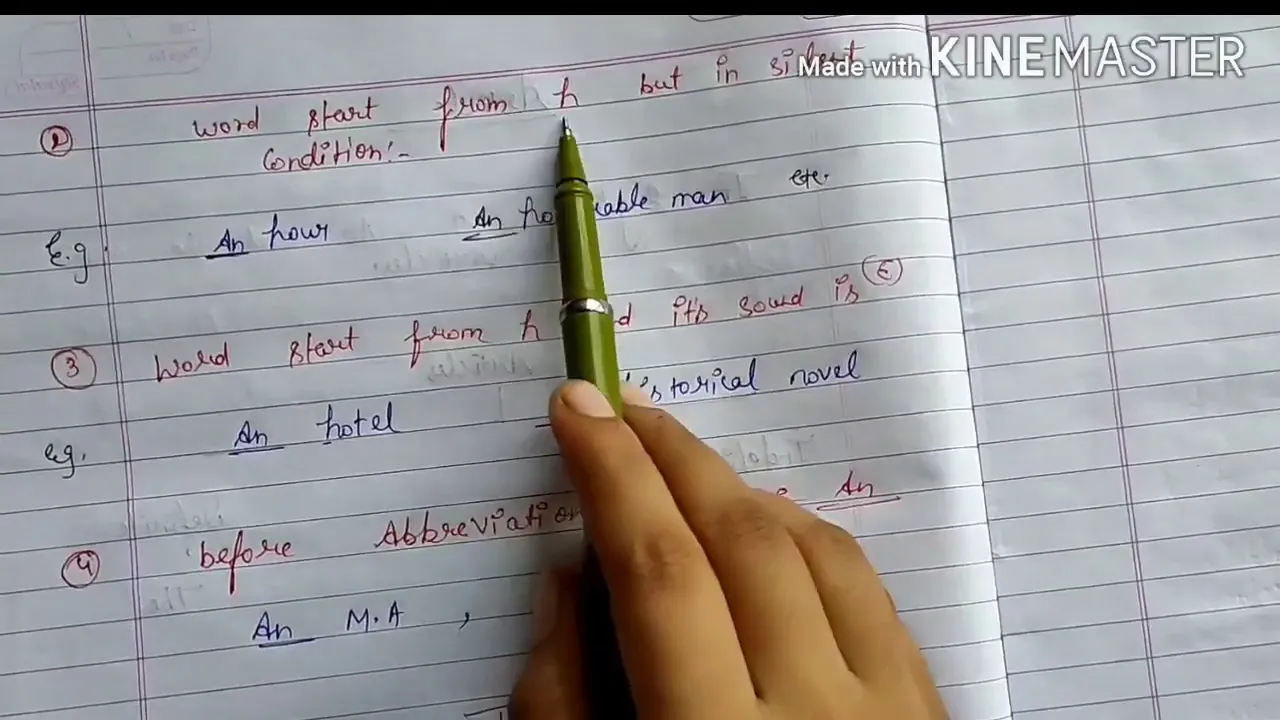 Made with KINEMASTER
② word start from h but in silent
Condition:-
E.g. An hour An honourable man etc.
③ Word start from h its sound is (E)
eg. An hotel historical novel
④ before Abbreviation An
An M.A ,